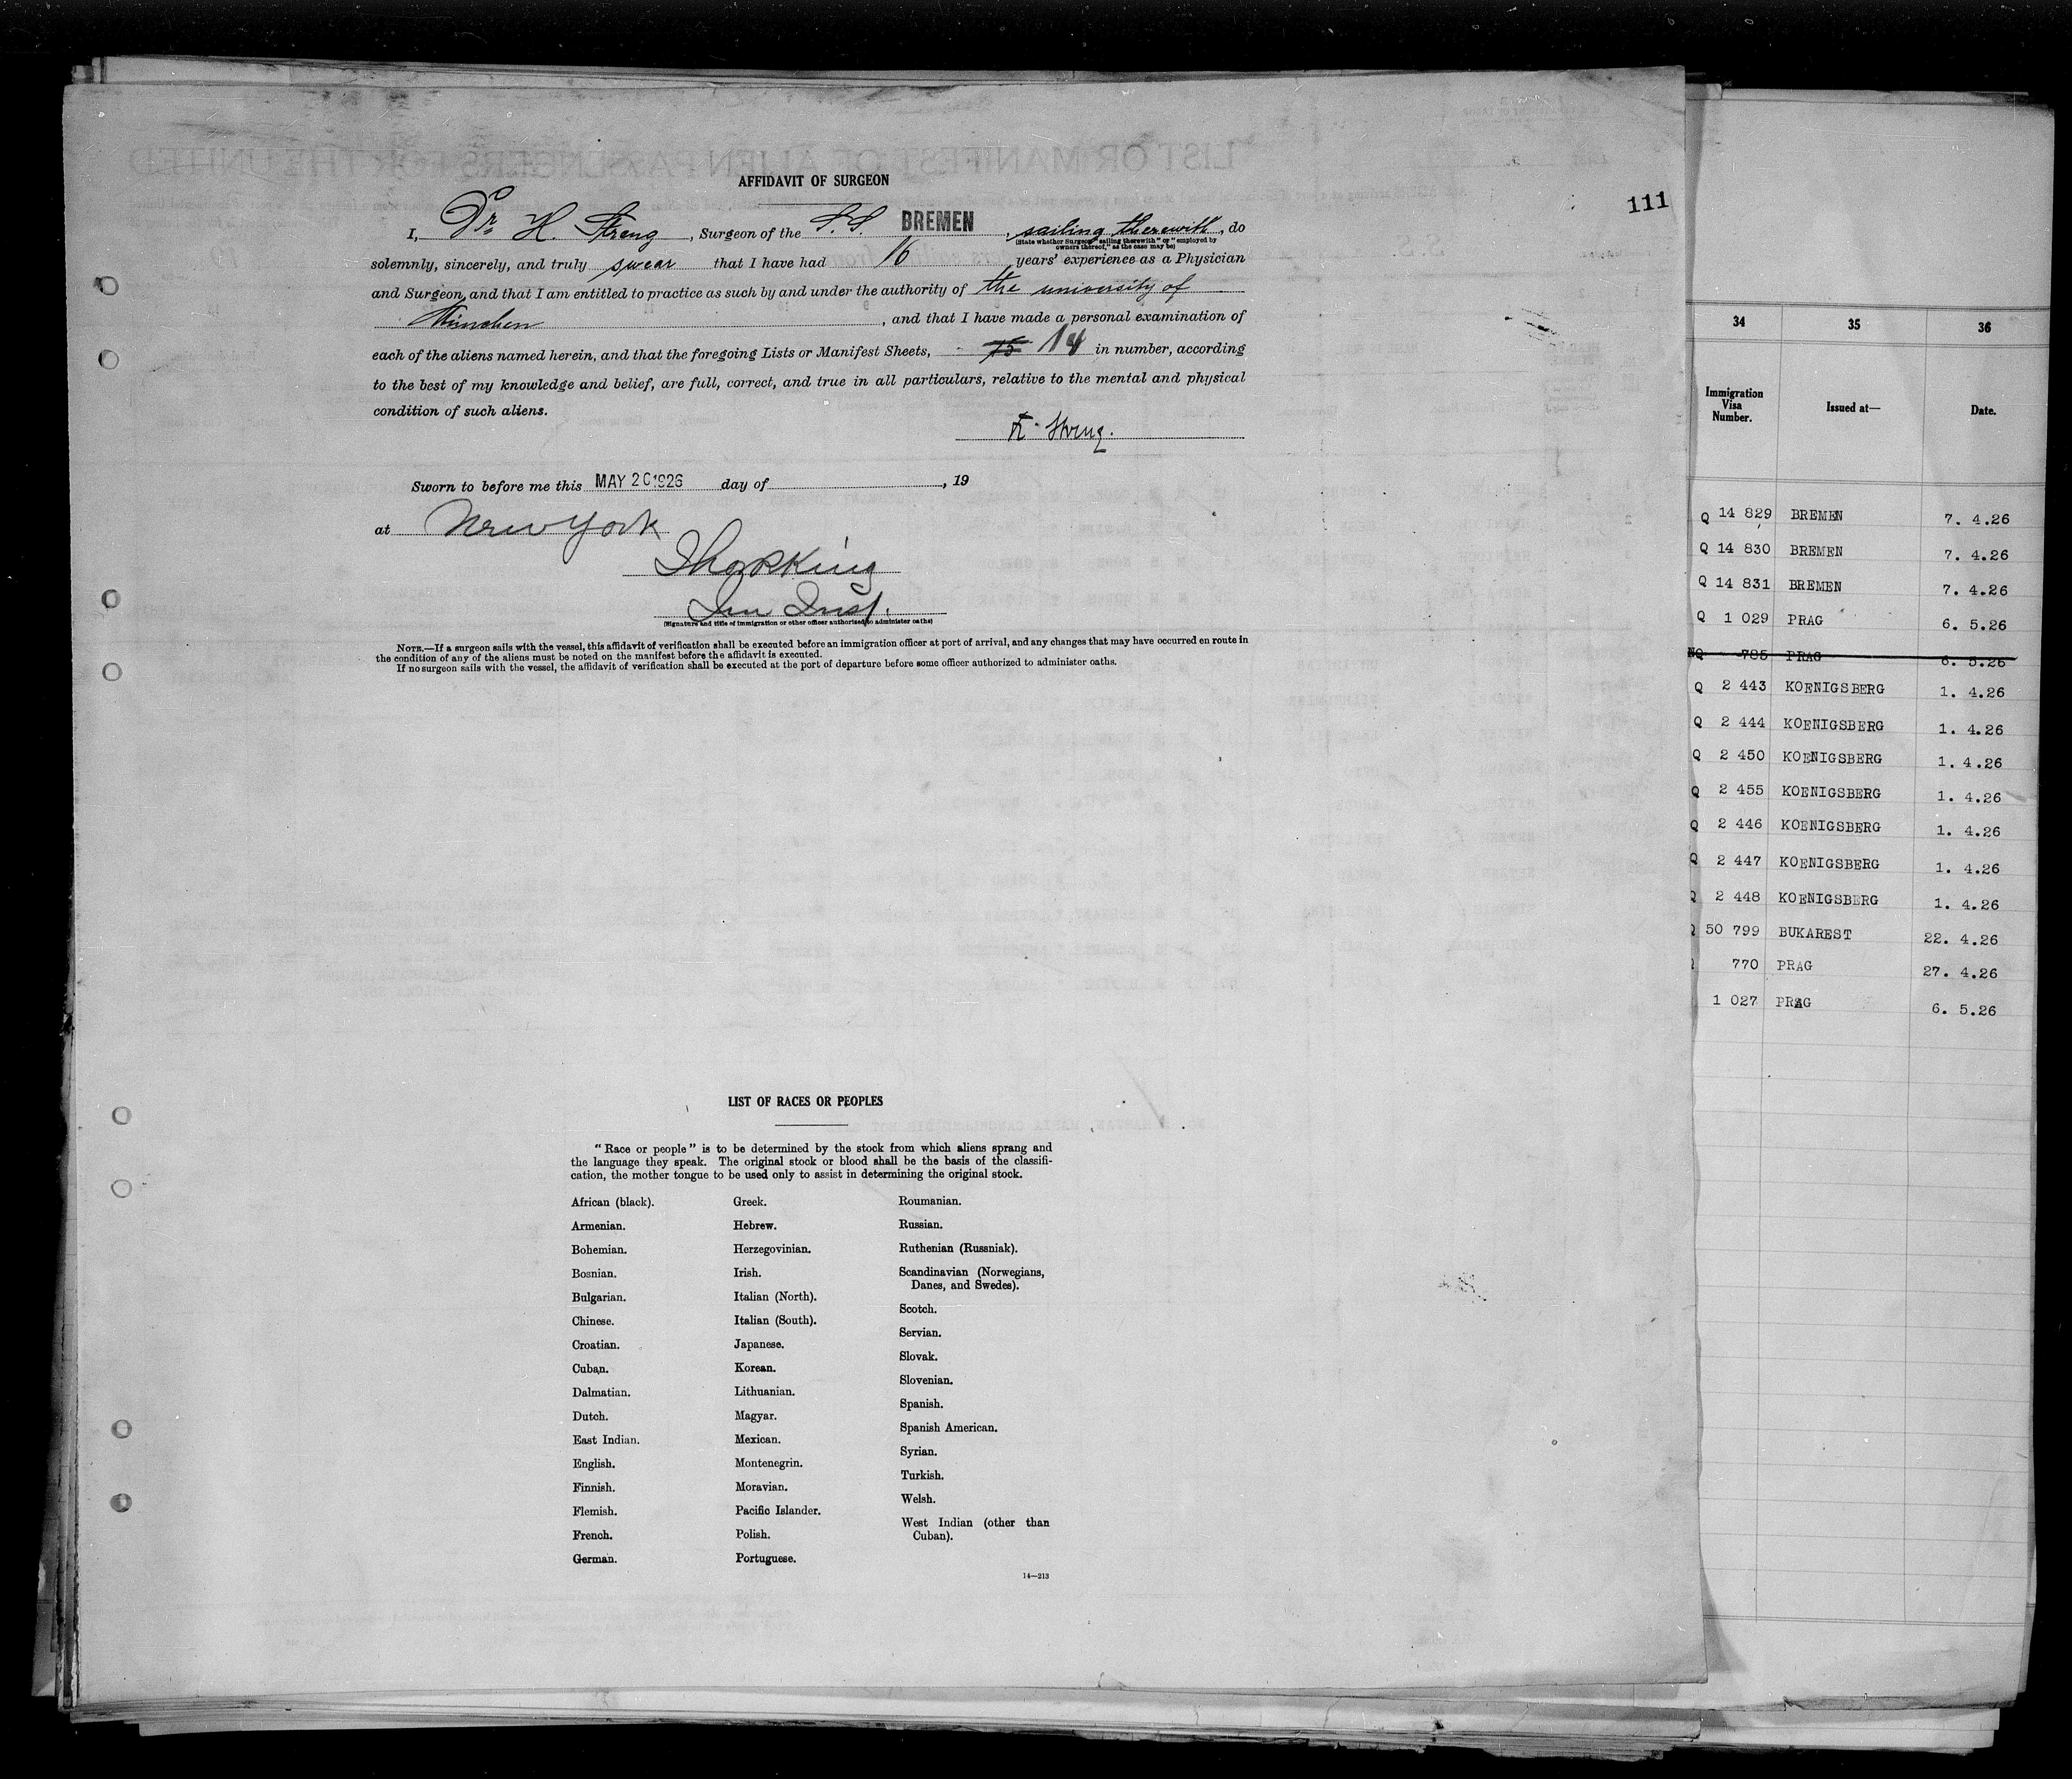 AFFIDAVIT OF SURGEON
111
I, Dr. H. Streng, Surgeon of the S.S. BREMEN, sailing therewith, do
(State whether Surgeon "sailing therewith" or "employed by
owners thereof," as the case may be)
solemnly, sincerely, and truly swear that I have had 16 years' experience as a Physician
and Surgeon, and that I am entitled to practice as such by and under the authority of the university of
München, and that I have made a personal examination of
each of the aliens named herein, and that the foregoing Lists or Manifest Sheets, 15 14 in number, according
to the best of my knowledge and belief, are full, correct, and true in all particulars, relative to the mental and physical
condition of such aliens.
Streng.
Sworn to before me this MAY 20 1926 day of , 19
at New York
Imm Insp.
(Signature and title of immigration or other officer authorized to administer oaths)
NOTE.—If a surgeon sails with the vessel, this affidavit of verification shall be executed before an immigration officer at port of arrival, and any changes that may have occurred en route in
the condition of any of the aliens must be noted on the manifest before the affidavit is executed.
If no surgeon sails with the vessel, the affidavit of verification shall be executed at the port of departure before some officer authorized to administer oaths.
LIST OF RACES OR PEOPLES
"Race or people" is to be determined by the stock from which aliens sprang and
the language they speak. The original stock or blood shall be the basis of the classifi-
cation, the mother tongue to be used only to assist in determining the original stock.
African (black).
Armenian.
Bohemian.
Bosnian.
Bulgarian.
Chinese.
Croatian.
Cuban.
Dalmatian.
Dutch.
East Indian.
English.
Finnish.
Flemish.
French.
German.
Greek.
Hebrew.
Herzegovinian.
Irish.
Italian (North).
Italian (South).
Japanese.
Korean.
Lithuanian.
Magyar.
Mexican.
Montenegrin.
Moravian.
Pacific Islander.
Polish.
Portuguese.
Roumanian.
Russian.
Ruthenian (Russniak).
Scandinavian (Norwegians,
Danes, and Swedes).
Scotch.
Servian.
Slovak.
Slovenian.
Spanish.
Spanish American.
Syrian.
Turkish.
Welsh.
West Indian (other than
Cuban).
14—213
34 35 36
Immigration
Visa
Number.
Issued at—
Date.
Q 14 829 BREMEN 7. 4.26
Q 14 830 BREMEN 7. 4.26
Q 14 831 BREMEN 7. 4.26
Q 1 029 PRAG 6. 5.26
NQ 785 PRAG 6. 5.26
Q 2 443 KOENIGSBERG 1. 4.26
Q 2 444 KOENIGSBERG 1. 4.26
Q 2 450 KOENIGSBERG 1. 4.26
Q 2 455 KOENIGSBERG 1. 4.26
Q 2 446 KOENIGSBERG 1. 4.26
Q 2 447 KOENIGSBERG 1. 4.26
Q 2 448 KOENIGSBERG 1. 4.26
Q 50 799 BUKAREST 22. 4.26
770 PRAG 27. 4.26
1 027 PRAG 6. 5.26